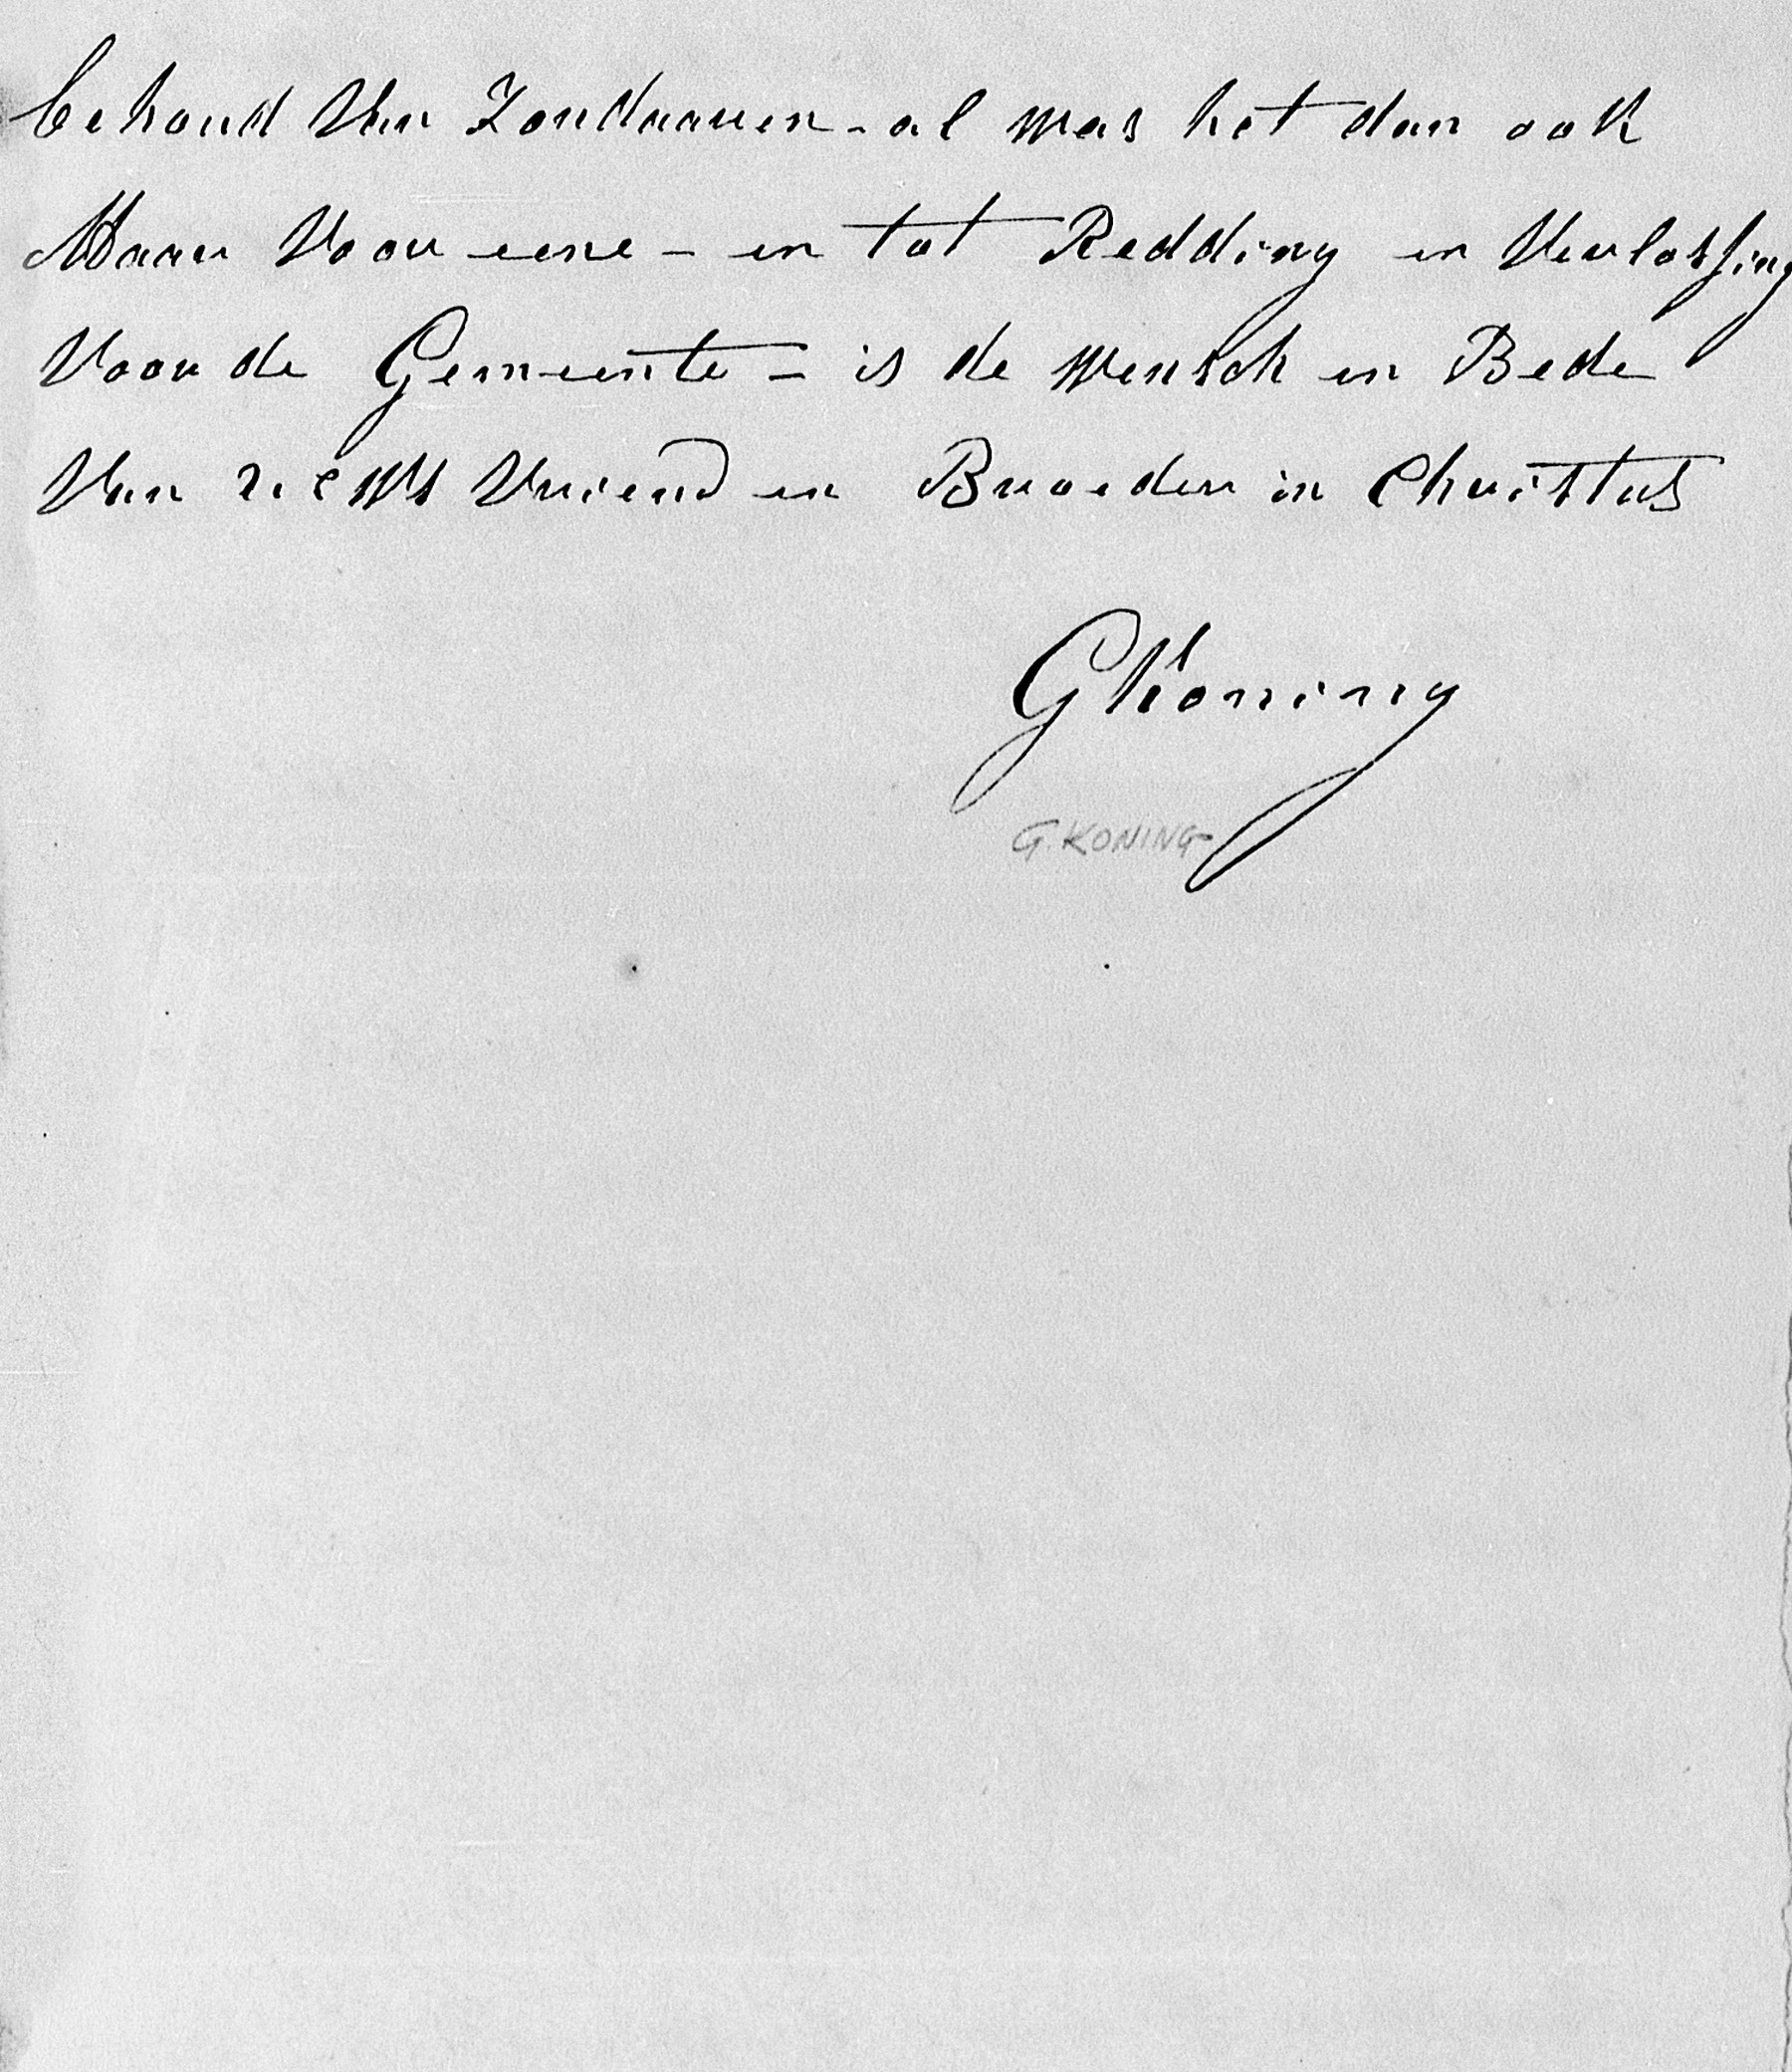 behoud Van Zondaaren - al was het dan ook
Maar Voor eene - en tot Redding en Verlossing
Voor de Gemeente - is de wensch en Bede
Van Vriend en Broeder in Christus
GKoning
G. KONING